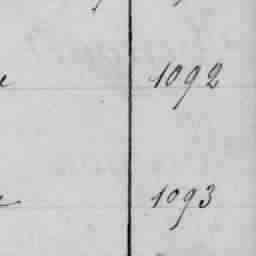 1092
1093